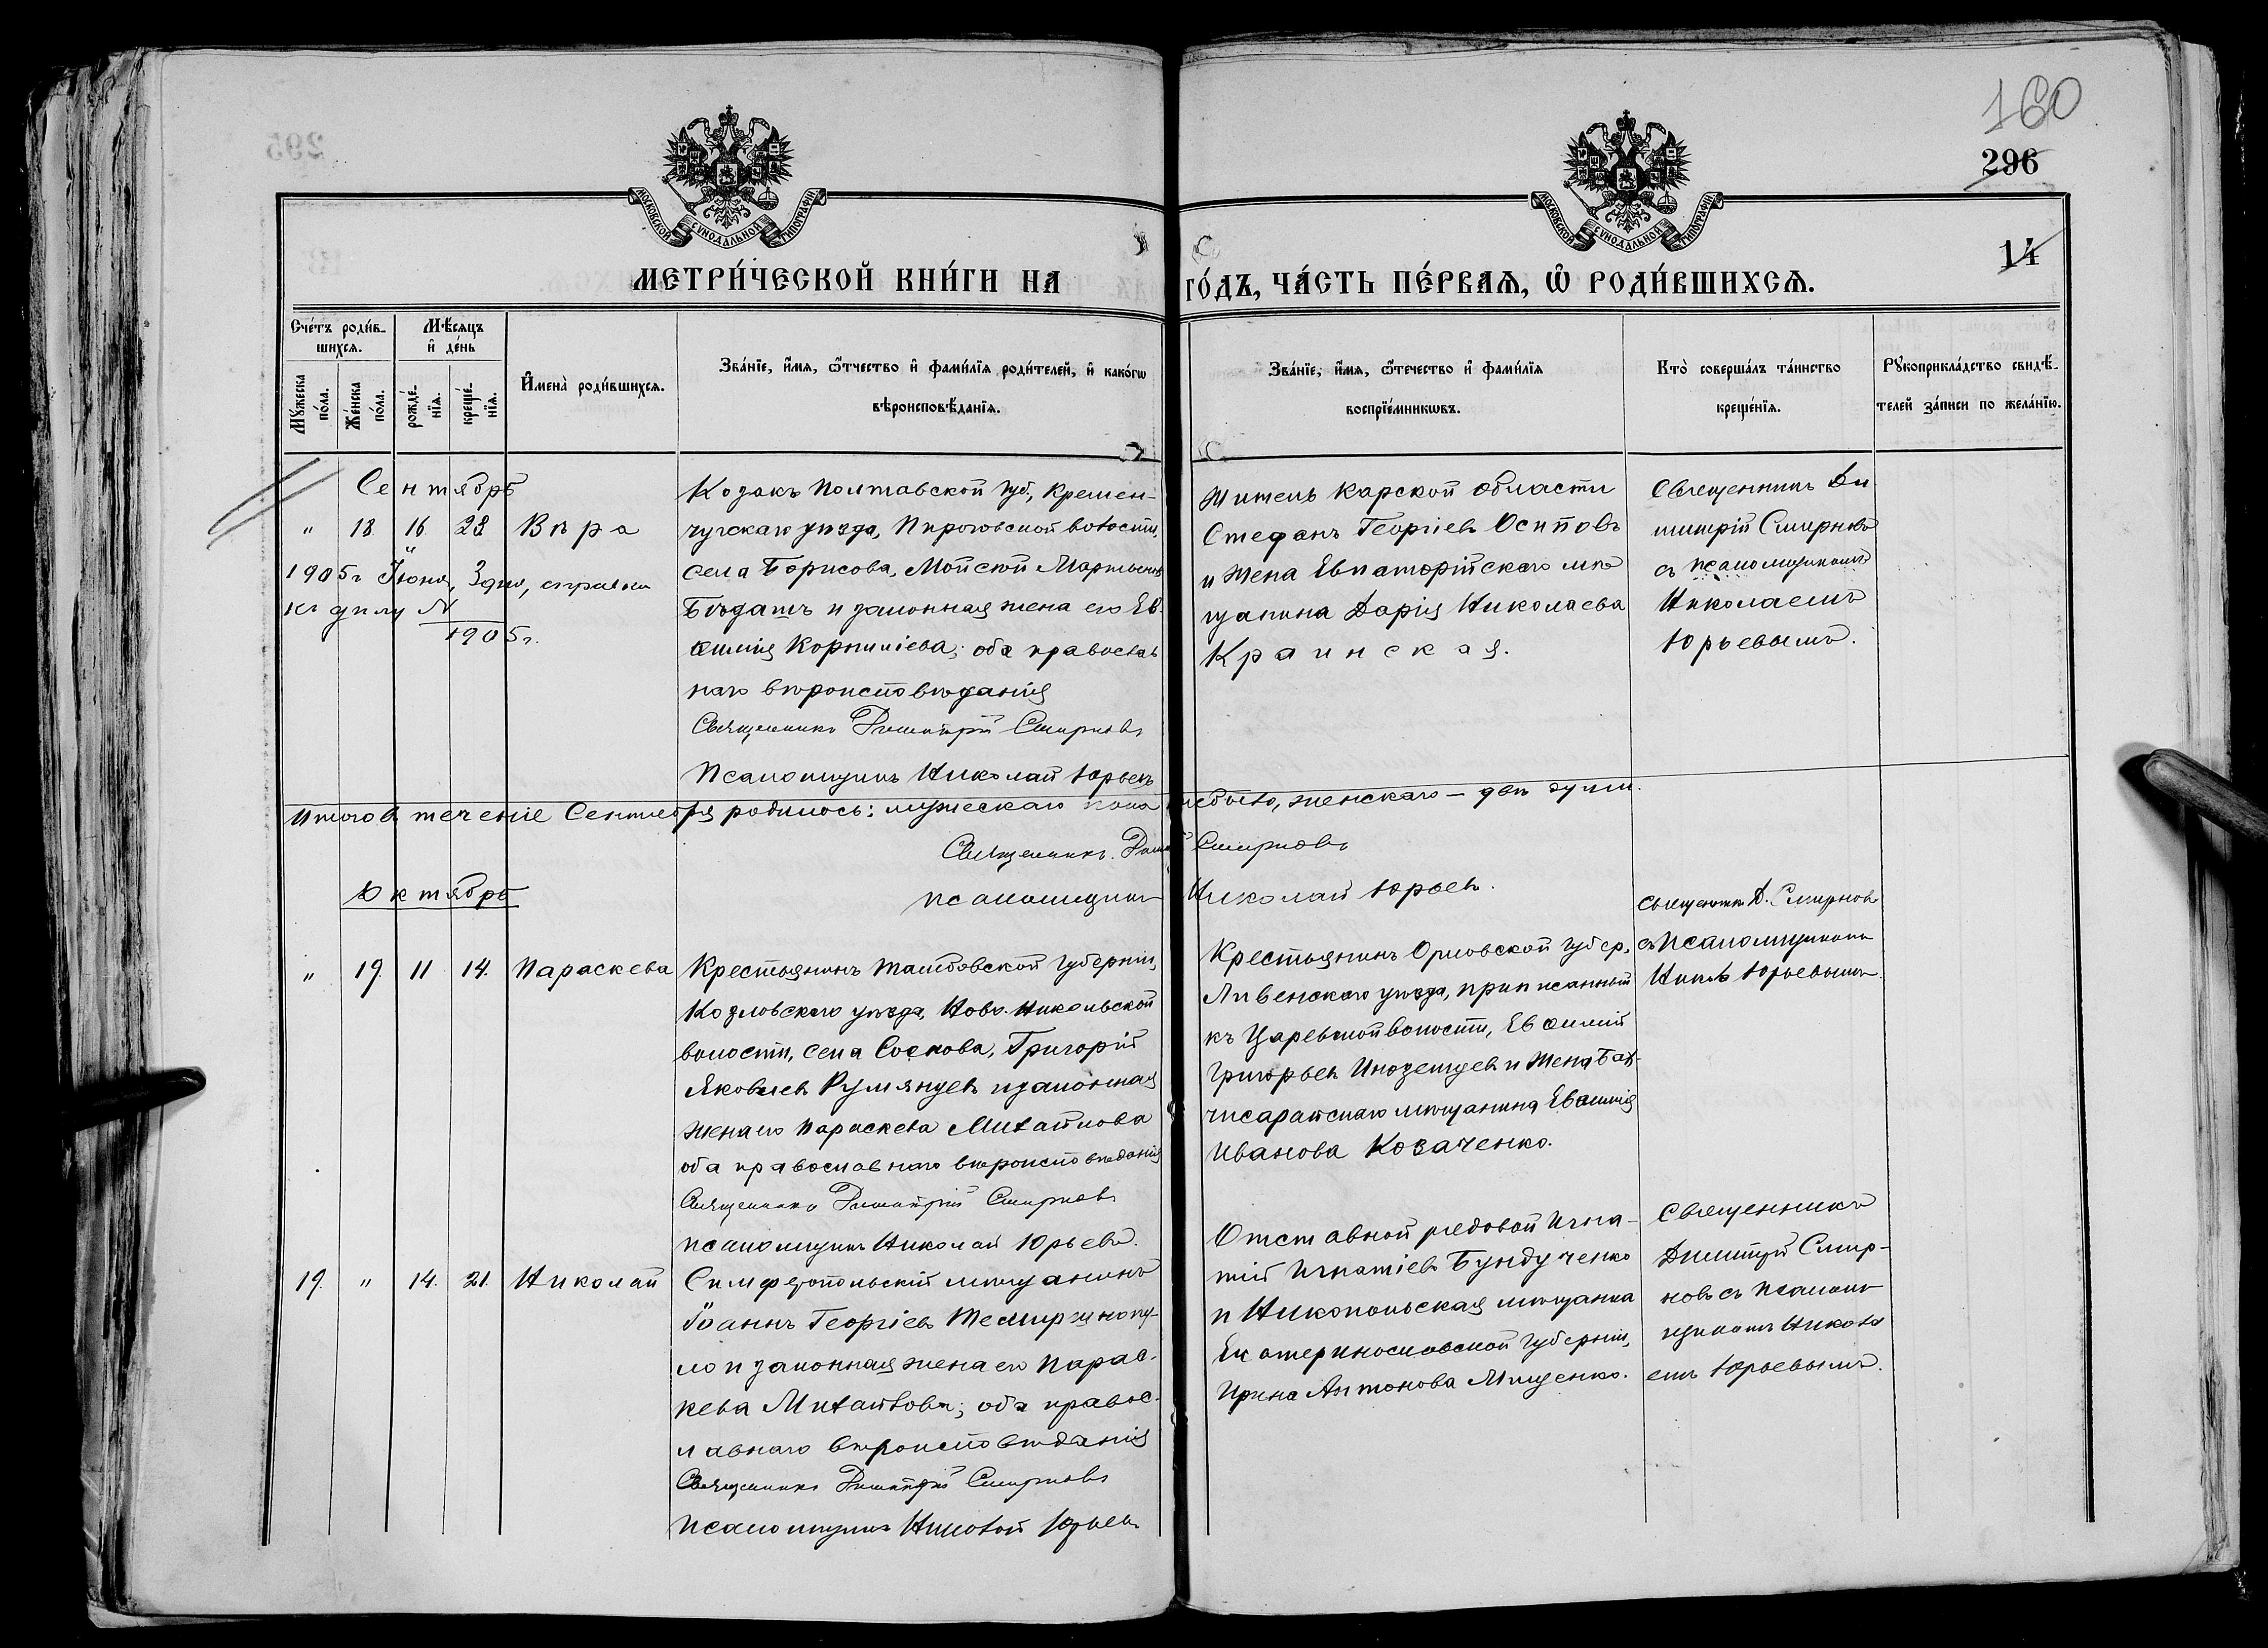 160
296
14
МОСКОВСКОЙ СѴНОДАЛЬНОЙ ТИПОГРАФІИ
МОСКОВСКОЙ СѴНОДАЛЬНОЙ ТИПОГРАФІИ
МЕТРИ́ЧЕСКОЙ КНИ́ГИ НА ГО́ДЪ, ЧА́СТЬ ПЕ́РВАѦ, Ѽ РОДИ́ВШИХСѦ.
Сче́тъ роди́в-
шихсѧ.
Мѣ́сѧцъ
и҆ де́нь
Мꙋ́жеска по́ла.
Же́нска по́ла.
рожде́-
нїѧ.
креще́-
нїѧ.
И҆мена̀ роди́вшихсѧ.
Зва́нїе, и҆́мѧ, ѻ҆́тчество и҆ фами́лїѧ роди́телей, и҆ како́гѡ
вѣроисповѣ́данїѧ.
Зва́нїе, и҆́мѧ, ѻ҆те́чество и҆ фами́лїѧ
воспрїе́мникѡвъ.
Кто̀ соверша́лъ та́инство
креще́нїѧ.
Рꙋкоприкла́дство свидѣ́-
телей за́писи по жела́нїю.
Сентябрь
" 18 16 22 Вѣра
1905 г Іюня, 3 дня, справка
къ дѣлу №
1905 г.
Козакъ Полтавской губ., Кремен-
чугскаго уѣзда, Пироговской волости,
села Борисова, Мойсей Мартыновъ
Бѣдашъ и законная жена его Ев-
ѳимія Корниліева; оба православ
наго вѣроисповѣданія
Священникъ Димитрій Смирновъ
Псаломщикъ Николай Юрьевъ
Житель Карской области
Стефанъ Георгіевъ Осиповъ
и жена Евпаторійскаго мѣ
щанина Дарія Николаева
Краинская.
Священникъ Ди
митрій Смирновъ
съ псаломщикомъ
Николаемъ
Юрьевымъ.
Итого въ теченіе Сентября родилось: мужескаго пола небыло, женскаго — двѣ души.
Священникъ Дим Смирновъ
псаломщикъ Николай Юрьевъ.
Октябрь
" 19 11 14. Параскева
Крестьянинъ Тамбовской губерніи,
Козловскаго уѣзда, Ново-Никольской
волости, села Соскова, Григорій
Яковлевъ Румянцевъ и законная
жена его Параскева Михайлова
оба православнаго вѣроисповѣданія
Священникъ Димитрій Смирновъ
псаломщикъ Николай Юрьевъ.
Крестьянинъ Орловской губер,
Ливенскаго уѣзда, приписанный
къ Царевской волости, Евѳимій
Григорьевъ Иноземцевъ и жена Бах-
чисарайскаго мѣщанина Евѳимія
Иванова Козаченко.
Священник Д. Смирновъ
съ псаломщикомъ
Никол Юрьевымъ.
19. " 14. 21. Николай
Симферопольскій мѣщанинъ
Іоаннъ Георгіевъ
ло и законная жена его Парас-
кева Михайлова; оба правос-
лавнаго вѣроисповѣданія
Священникъ Димитрій Смирновъ
Псаломщикъ Николай Юрьевъ
Отставной рядовой Игна-
тій Игнатіевъ Бундученко
и Никопольская мѣщанка
Екатеринославской губерніи,
Ирина Антонова Мищенко.
Священникъ
Димитрій Смир-
новъ съ псалом-
щикомъ Никола
емъ Юрьевымъ.